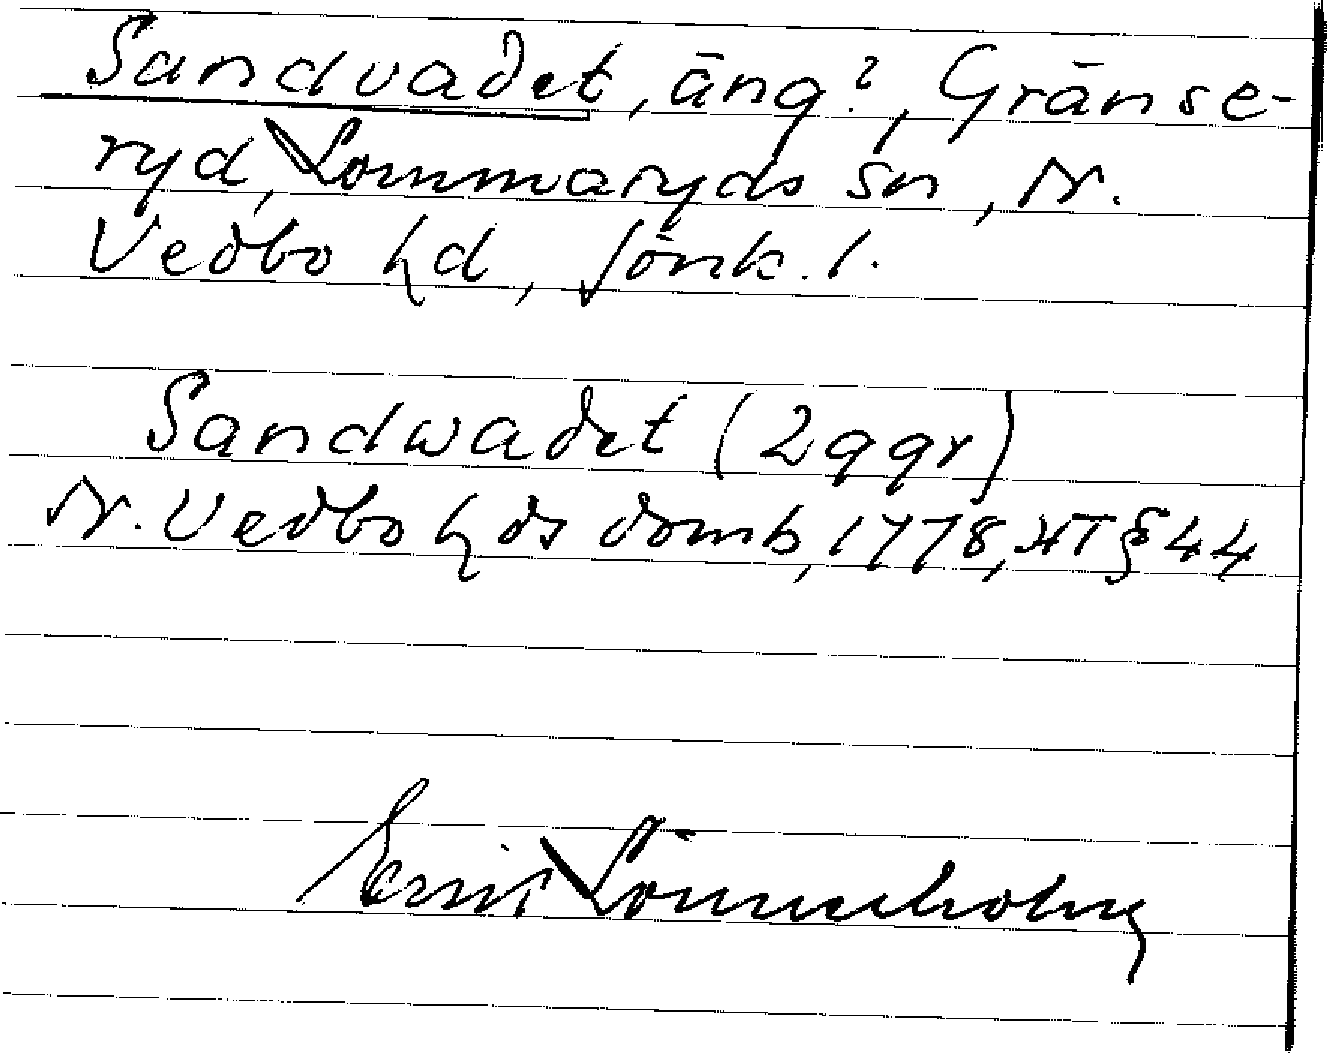 Sandvadet, äng?, Gränse-
ryd, Lommaryds sn, N.
Vedbo hd, Jönk. l.
Sandwadet (2 ggr)
N. Vedbo hds domb, 1778, HT § 44
Lönnerholm